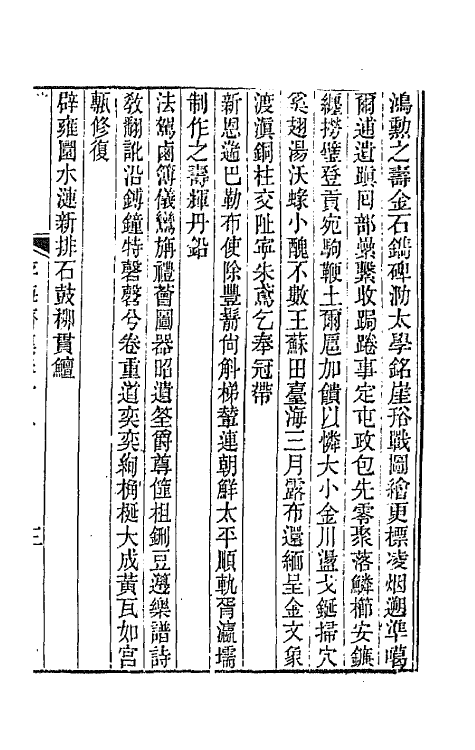 鴻勳之壽金石鐫碑泐太學銘崖殆戰圖繪更標凌烟遡準噶
爾逋遺蹟回部蘽繫收跼踡事定屯政包先零聚落鱗櫛安鑣
纏撈璧登貢宛駒鞭土爾扈加饋以憐大小金川盪戈鋋掃穴
奚翅湯沃蝝小醜不數王蘇田臺海三月露布還緬呈金文象
渡滇銅柱交阯寧朱鳶乞奉冠帶
新恩遄巴勒布使除豐鬋尙斛梯輦連朝鮮太平順軌胥瀛壖
制作之壽輝丹鉛
法駕鹵簿儀鸞旃禮薈圖器昭遺筌爵尊僅柤鉶豆籩樂譜詩
敎翻訛沿鎛鐘特磬磬兮卷重道奕奕絢桷梴大成黃瓦如宮
甎修復
辟雍圜水漣新排石鼓柳貫饘